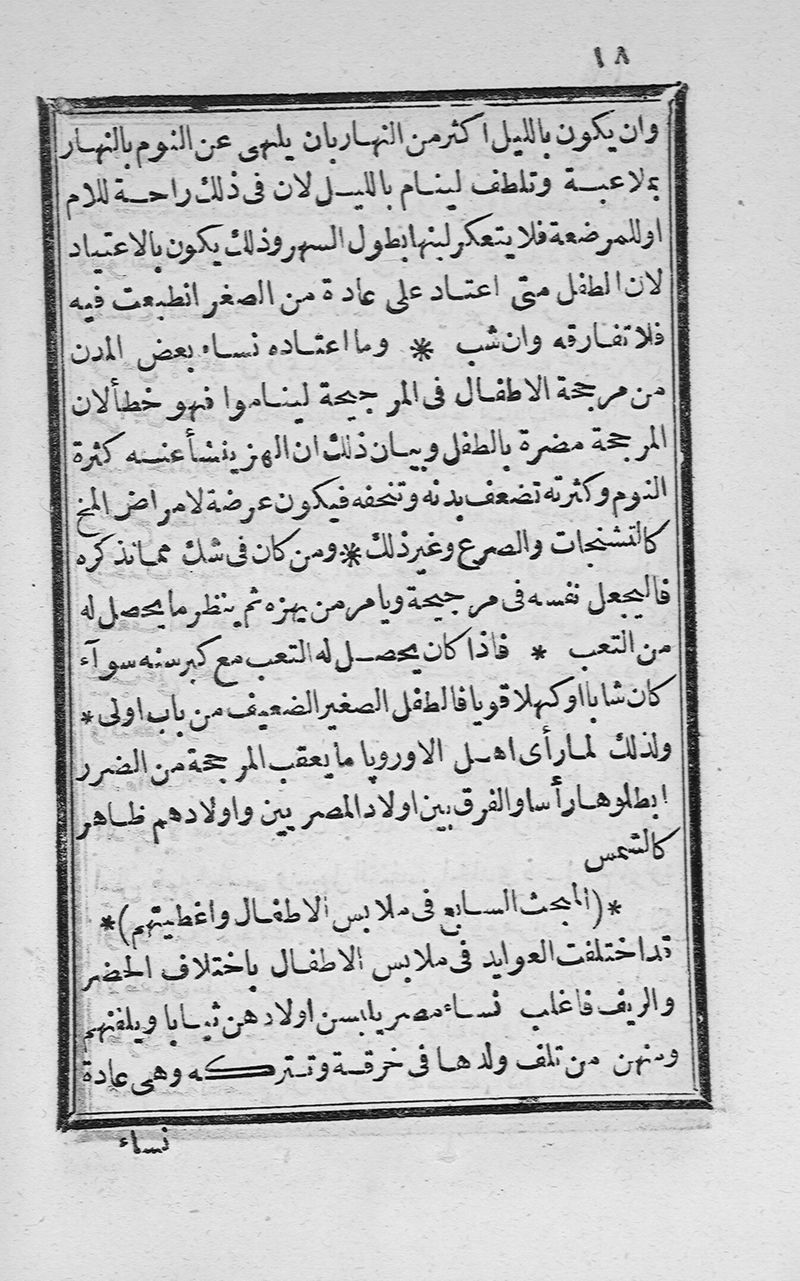 ١٨
وان يكون بالليل اكثر من النهار بان يلهى عن النوم بالنهار
بملاعبة وتلطف لينام بالليل لان فى ذلك راحة للام
او للمرضعة فلا يتعكر لبنها بطول السهر وذلك يكون بالاعتياد
لان الطفل متى اعتاد على عادة من الصغر انطبعت فيه
فلا تفارقه وان شب * وما اعتاده نساء بعض المدن
من مرجحة الاطفال فى المرجيحة ليناموا فهو خطأ لان
المرجحة مضرة بالطفل وبيان ذلك ان الهز ينشأ عنه كثرة
النوم وكثرته تضعف بدنه وتنحفه فيكون عرضة لامراض المخ
كالتشنجات والصرع وغير ذلك * ومن كان فى شك مما نذكره
فاليجعل نفسه فى مرجيحة ويامر من يهزه ثم ينظر ما يحصل له
من التعب * فاذا كان يحصل له التعب مع كبر سنه سوآء
كان شابا او كهلا قويا فالطفل الصغير الضعيف من باب اولى *
ولذلك لما رأى اهل الاوروپا ما يعقب المرجحة من الضرر
ابطلوها رأسا والفرق بين اولاد المصريين واولادهم ظاهر
كالشمس
*(المبحث السابع فى ملابس الاطفال واغطيتهم)*
قد اختلفت العوايد فى ملابس الاطفال باختلاف الحضر
والريف فاغلب نساء مصر يلبسن اولادهن ثيابا ويلفنهم
ومنهن من تلف ولدها فى خرقة وتتركه وهى عادة
نساء